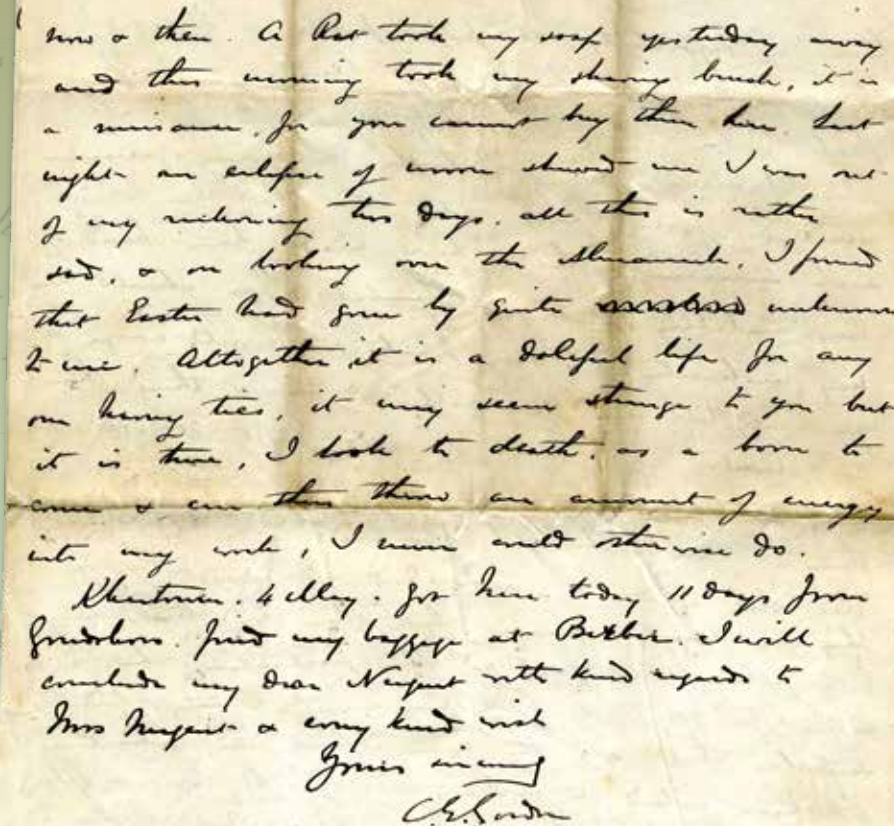 now & then. A Rat took my soap yesterday away
and this morning took my shaving brush, it is
a nuisance, for you cannot buy them here. Last
night an eclipse of moon showed me I was out
of my reckoning two days. all this is rather
sad, & on looking over the Almanack, I found
that Easter had gone by quite unknown
to me. Altogether it is a doleful life for any
one having ties, it may seem strange to you but
it is true, I look to death, as a boon to
come & can thus throw an amount of energy
into my work, I never could otherwise do.
Khartoum. 4 May. Got here today 11 days from
Gondokoro. find my baggage at Berber. I will
conclude my dear Nugent with kind regards to
Mrs Nugent & every kind wish
Yours sincerely
C. G. Gordon